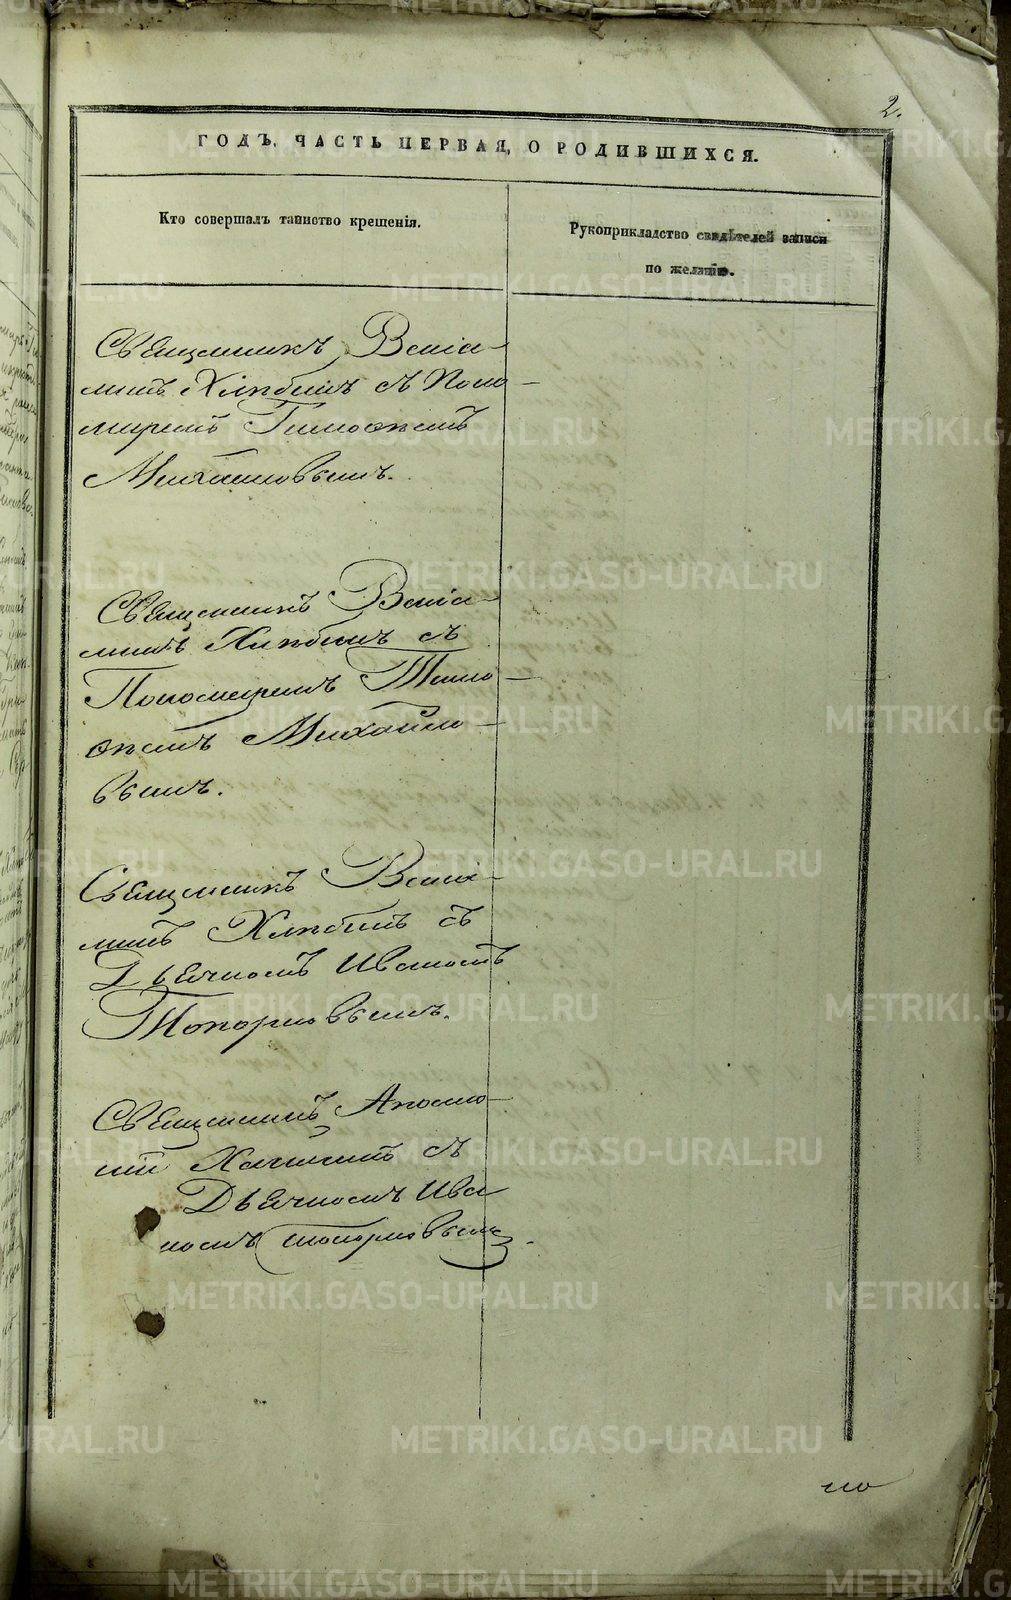 2.
ГОДЪ. ЧАСТЬ ПЕРВАЯ, О РОДИВШИХСЯ.
Кто совершалъ таинство крещенія.
Рукоприкладство свидѣтелей записи
по желанію.
Священникъ Веніа-
минъ Хлѣбинъ съ Поно-
маремъ Тимоѳеемъ
Михайловымъ.
Священникъ Веніа-
минъ Хлѣбинъ съ
Пономаремъ Тимо-
ѳеемъ Михайло-
вымъ.
Священникъ Веніа-
минъ Хлѣбинъ съ
Дьячкомъ Иваномъ
Топорковымъ.
Священникъ Аполло-
ній съ
Дьячкомъ Ива
номъ Топорковымъ.
METRIKI.GASO-URAL.RU